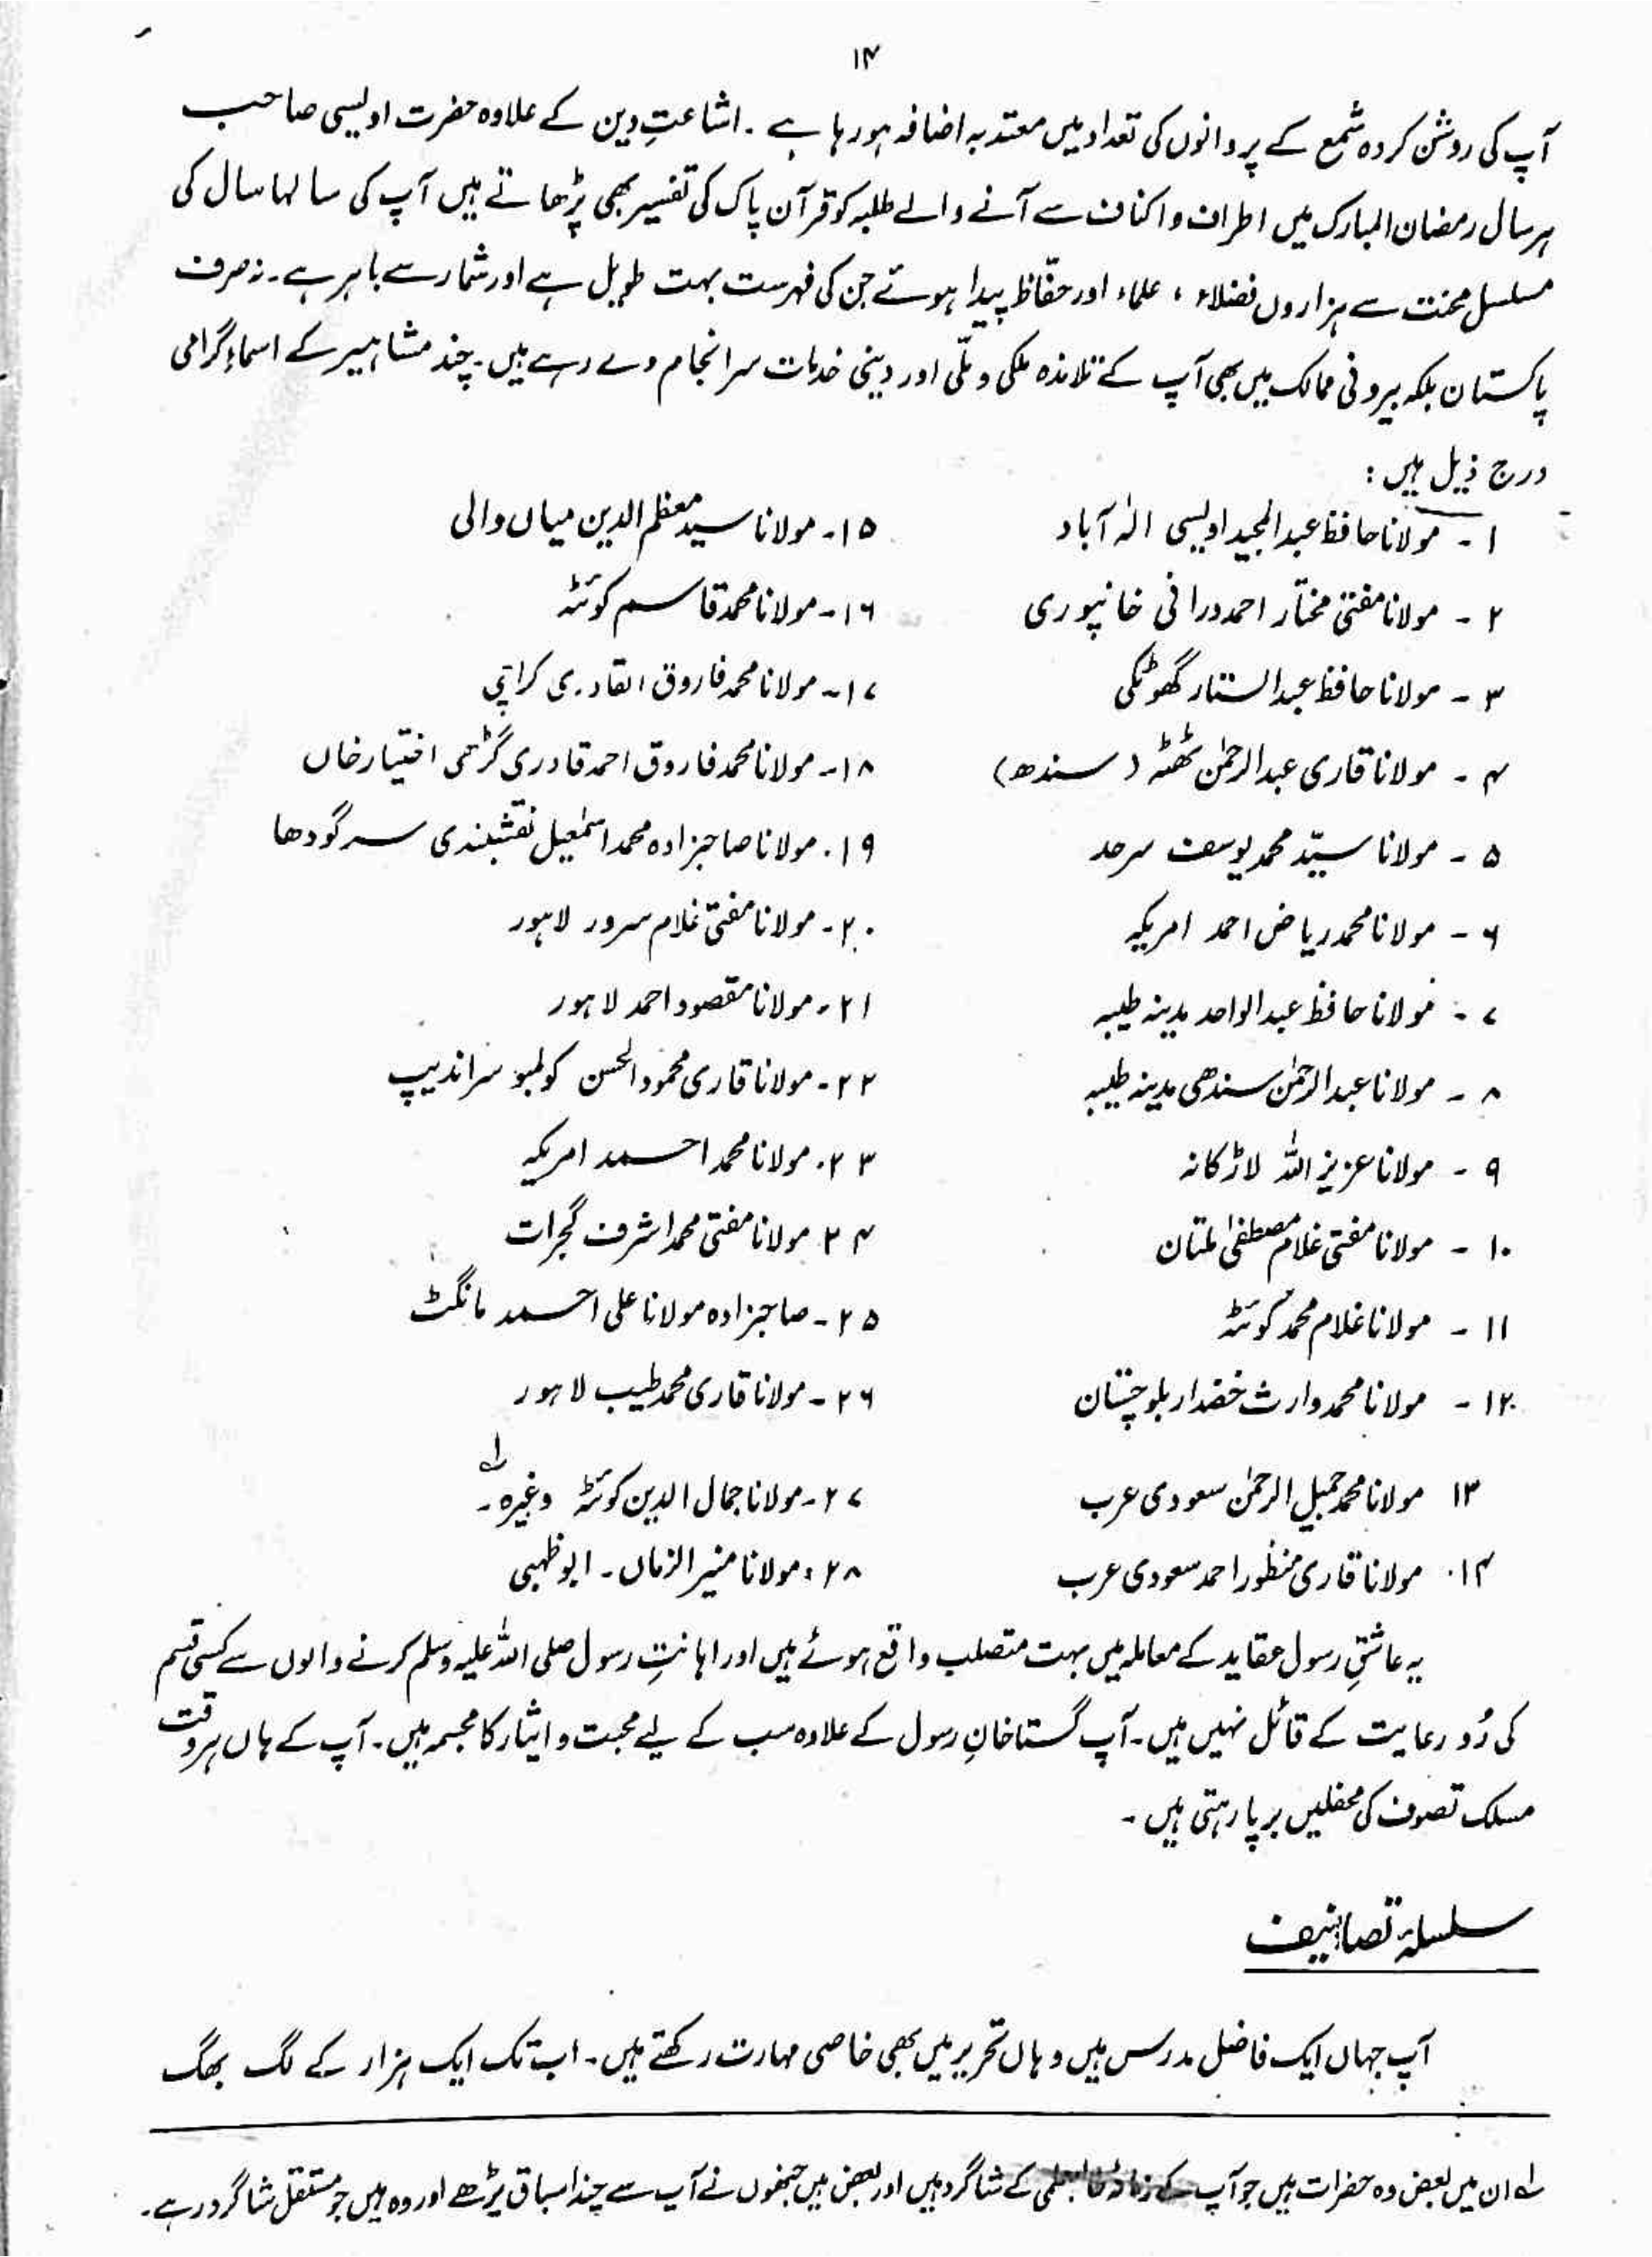 ۱۴
آپ کی روشن کردہ شمع کے پروانوں کی تعداد میں معتد بہ اضافہ ہو رہا ہے ۔ اشاعتِ دین کے علاوہ حضرت اویسی صاحب
ہر سال رمضان المبارک میں اطراف و اکناف سے آنے والے طلبہ کو قرآن پاک کی تفسیر بھی پڑھاتے ہیں آپ کی سالہا سال کی
مسلسل محنت سے ہزاروں فضلاء ، علماء اور حفّاظ پیدا ہوئے جن کی فہرست بہت طویل ہے اور شمار سے باہر ہے ۔ نہ صرف
پاکستان بلکہ بیرونی ممالک میں بھی آپ کے تلامذہ ملکی و ملّی اور دینی خدمات سرانجام دے رہے ہیں ۔ چند مشاہیر کے اسماءِ گرامی
درج ذیل ہیں :
۱ ۔ مولانا حافظ عبدالمجید اویسی الٰہ آباد
۲ ۔ مولانا مفتی مختار احمد درانی خانپوری
۳ ۔ مولانا حافظ عبدالستار گھوٹکی
۴ ۔ مولانا قاری عبدالرحمٰن ٹھٹہ (سندھ)
۵ ۔ مولانا سیّد محمد یوسف سرحد
۶ ۔ مولانا محمد ریاض احمد امریکہ
۷ ۔ مولانا حافظ عبدالواحد مدینہ طیبہ
۸ ۔ مولانا عبدالرحمٰن سندھی مدینہ طیبہ
۹ ۔ مولانا عزیز اللہ لاڑکانہ
۱۰ ۔ مولانا مفتی غلام مصطفیٰ ملتان
۱۱ ۔ مولانا غلام محمد کوئٹہ
۱۲ ۔ مولانا محمد وارث خضدار بلوچستان
۱۳ مولانا محمد جمیل الرحمٰن سعودی عرب
۱۴ ۔ مولانا قاری منظور احمد سعودی عرب
۱۵ ۔ مولانا سید معظم الدین میاں والی
۱۶ ۔ مولانا محمد قاسم کوئٹہ
۱۷ ۔ مولانا محمد فاروق القادری کراچی
۱۸ ۔ مولانا محمد فاروق احمد قادری گڑھی اختیار خاں
۱۹ ۔ مولانا صاحبزادہ محمد اسمٰعیل نقشبندی سرگودھا
۲۰ ۔ مولانا مفتی غلام سرور لاہور
۲۱ ۔ مولانا مقصود احمد لاہور
۲۲ ۔ مولانا قاری محمود الحسن کولمبو سراندیپ
۲۳ ۔ مولانا محمد احمد امریکہ
۲۴ مولانا مفتی محمد اشرف گجرات
۲۵ ۔ صاحبزادہ مولانا علی احمد مانگٹ
۲۶ ۔ مولانا قاری محمد طیب لاہور
۲۷ ۔ مولانا جمال الدین کوئٹہ وغیرہ ۔ لے
۲۸ ۔ مولانا منیر الزماں ۔ ابوظہبی
یہ عاشقِ رسول عقاید کے معاملہ میں بہت متصلب واقع ہوئے ہیں اور اہانتِ رسول صلی اللہ علیہ وسلم کرنے والوں سے کسی قسم
کی رُو رعایت کے قائل نہیں ہیں ۔ آپ گستاخانِ رسول کے علاوہ سب کے لیے محبت و ایثار کا مجسمہ ہیں ۔ آپ کے ہاں ہر وقت
مسلک تصوف کی محفلیں برپا رہتی ہیں ۔
سلسلۂ تصانیف
آپ جہاں ایک فاضل مدرس ہیں وہاں تحریر میں بھی خاصی مہارت رکھتے ہیں ۔ اب تک ایک ہزار کے لگ بھگ
لے ان میں بعض وہ حضرات ہیں جو آپ کے زمانۂ طالبعلمی کے شاگرد ہیں اور بعض ہیں جنھوں نے آپ سے چند اسباق پڑھے اور وہ ہیں جو مستقل شاگرد رہے ۔